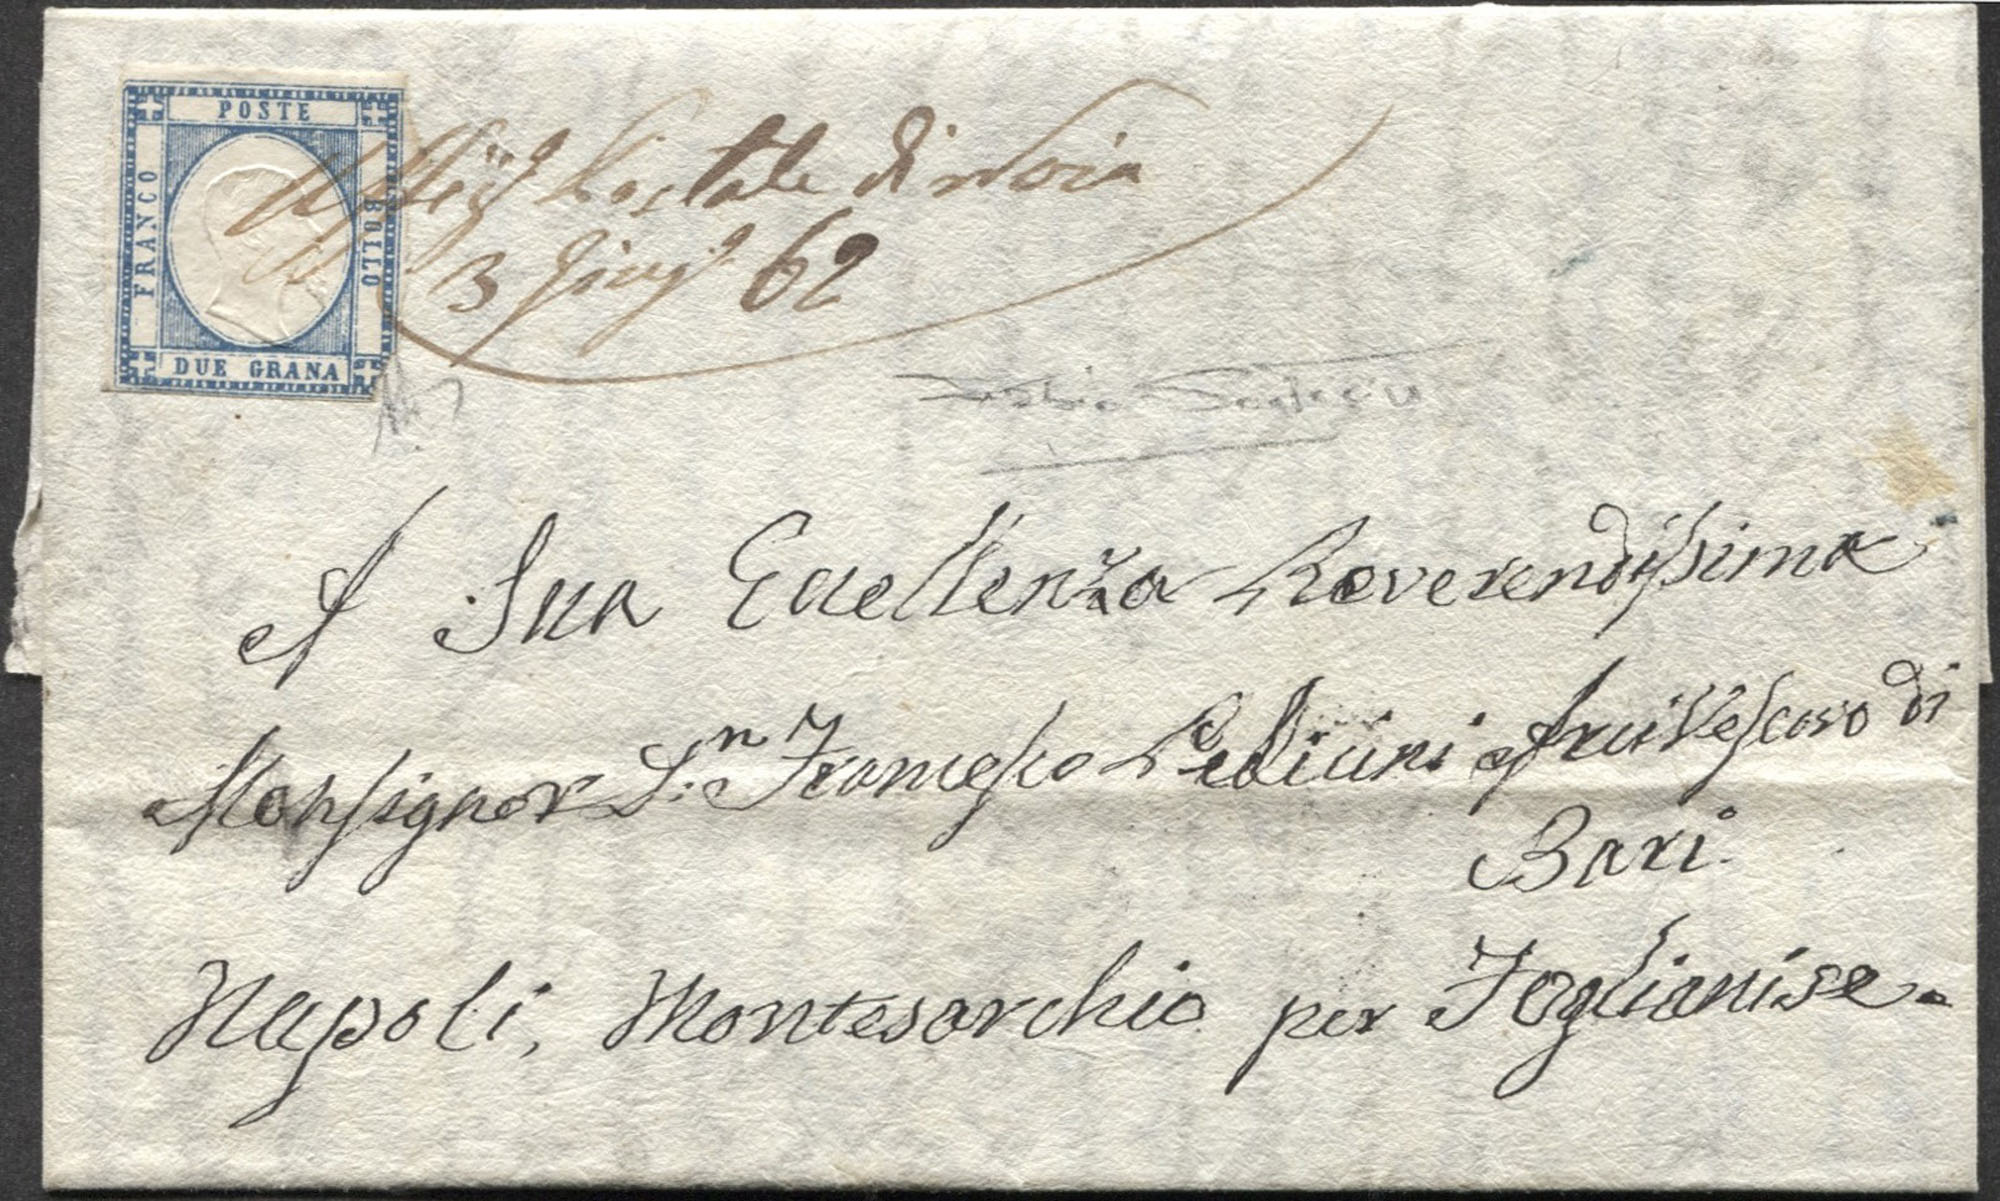 POSTE
FRANCO
BOLLO
DUE GRANA
Postale di Noia
3 Giug 62
A Sua Eccellenza Reverendissima
Monsignor D.n Francesco Pedicini Arcivescovo di
Bari
Napoli, Montesarchio per Foglianise.